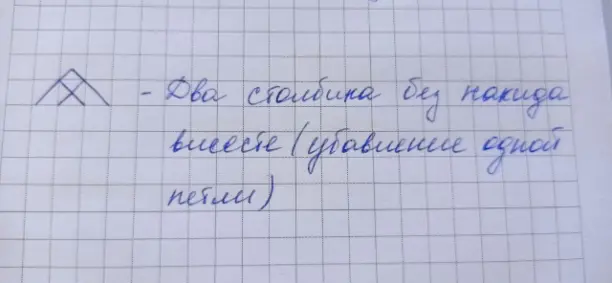 - Два столбика без накида
вместе (убавление одной
петли)